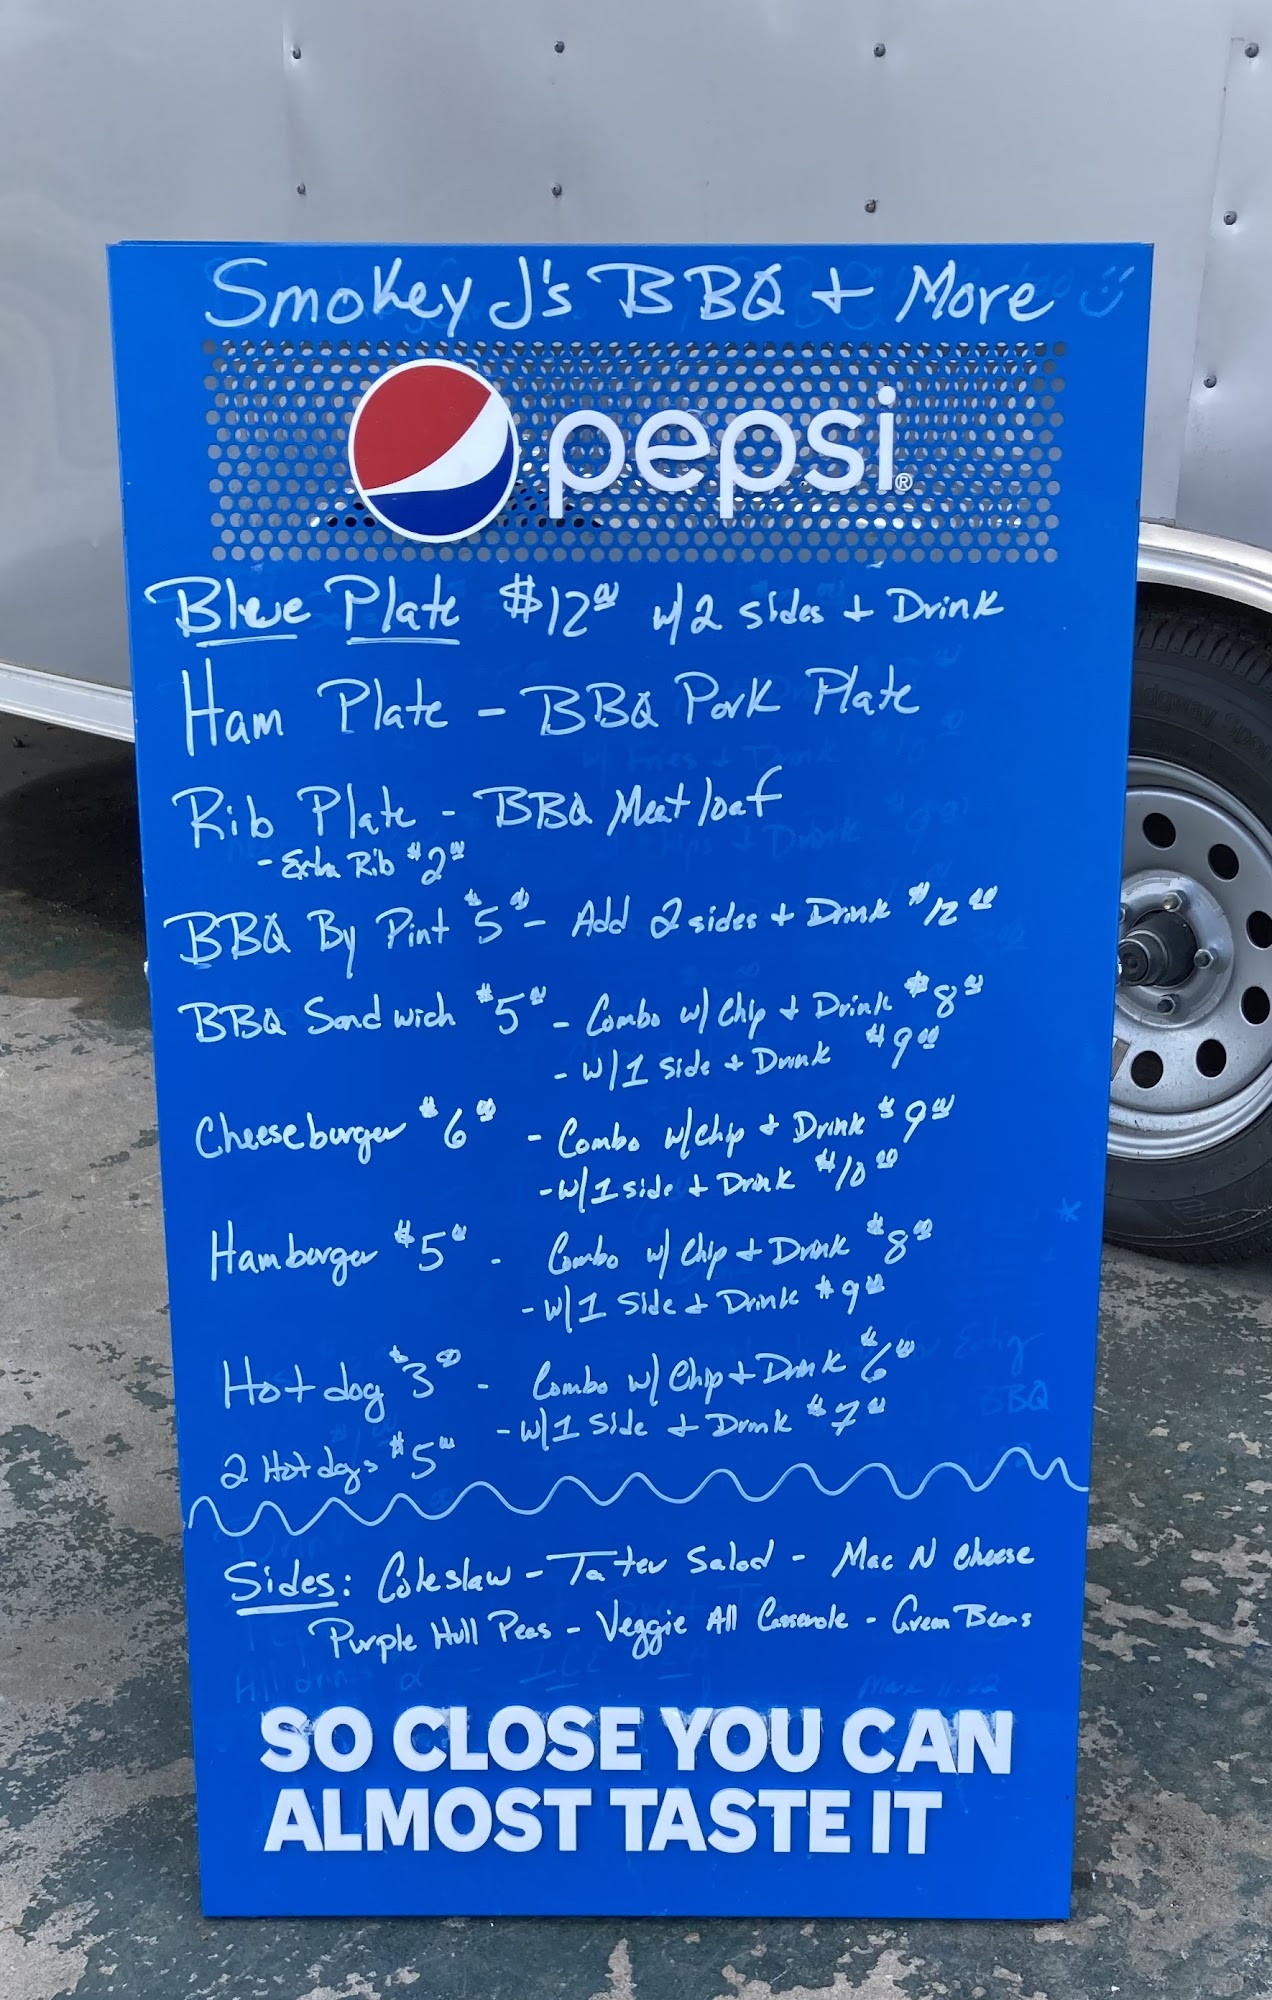 Smokey J's BBQ + More
pepsi®
Blue Plate $12.00 w/2 sides + Drink
Ham Plate - BBQ Pork Plate
Rib Plate - BBQ Meatloaf
- Extra Rib $2.00
BBQ By Pint $5.00 - Add 2 sides + Drink $12.00
BBQ Sandwich $5.00 - Combo w/ Chip + Drink $8.00
- w/1 side + Drink $9.00
Cheeseburger $6.00 - Combo w/chip + Drink $9.00
- w/1 side + Drink $10.00
Hamburger $5.00 - Combo w/ Chip + Drink $8.00
- w/1 Side + Drink $9.00
Hotdog $3.00 - Combo w/ Chip + Drink $6.00
- w/1 Side + Drink $7.00
2 Hotdogs $5.00
Sides: Coleslaw - Tater Salad - Mac N Cheese
Purple Hull Peas - Veggie All Casserole - Green Beans
SO CLOSE YOU CAN
ALMOST TASTE IT